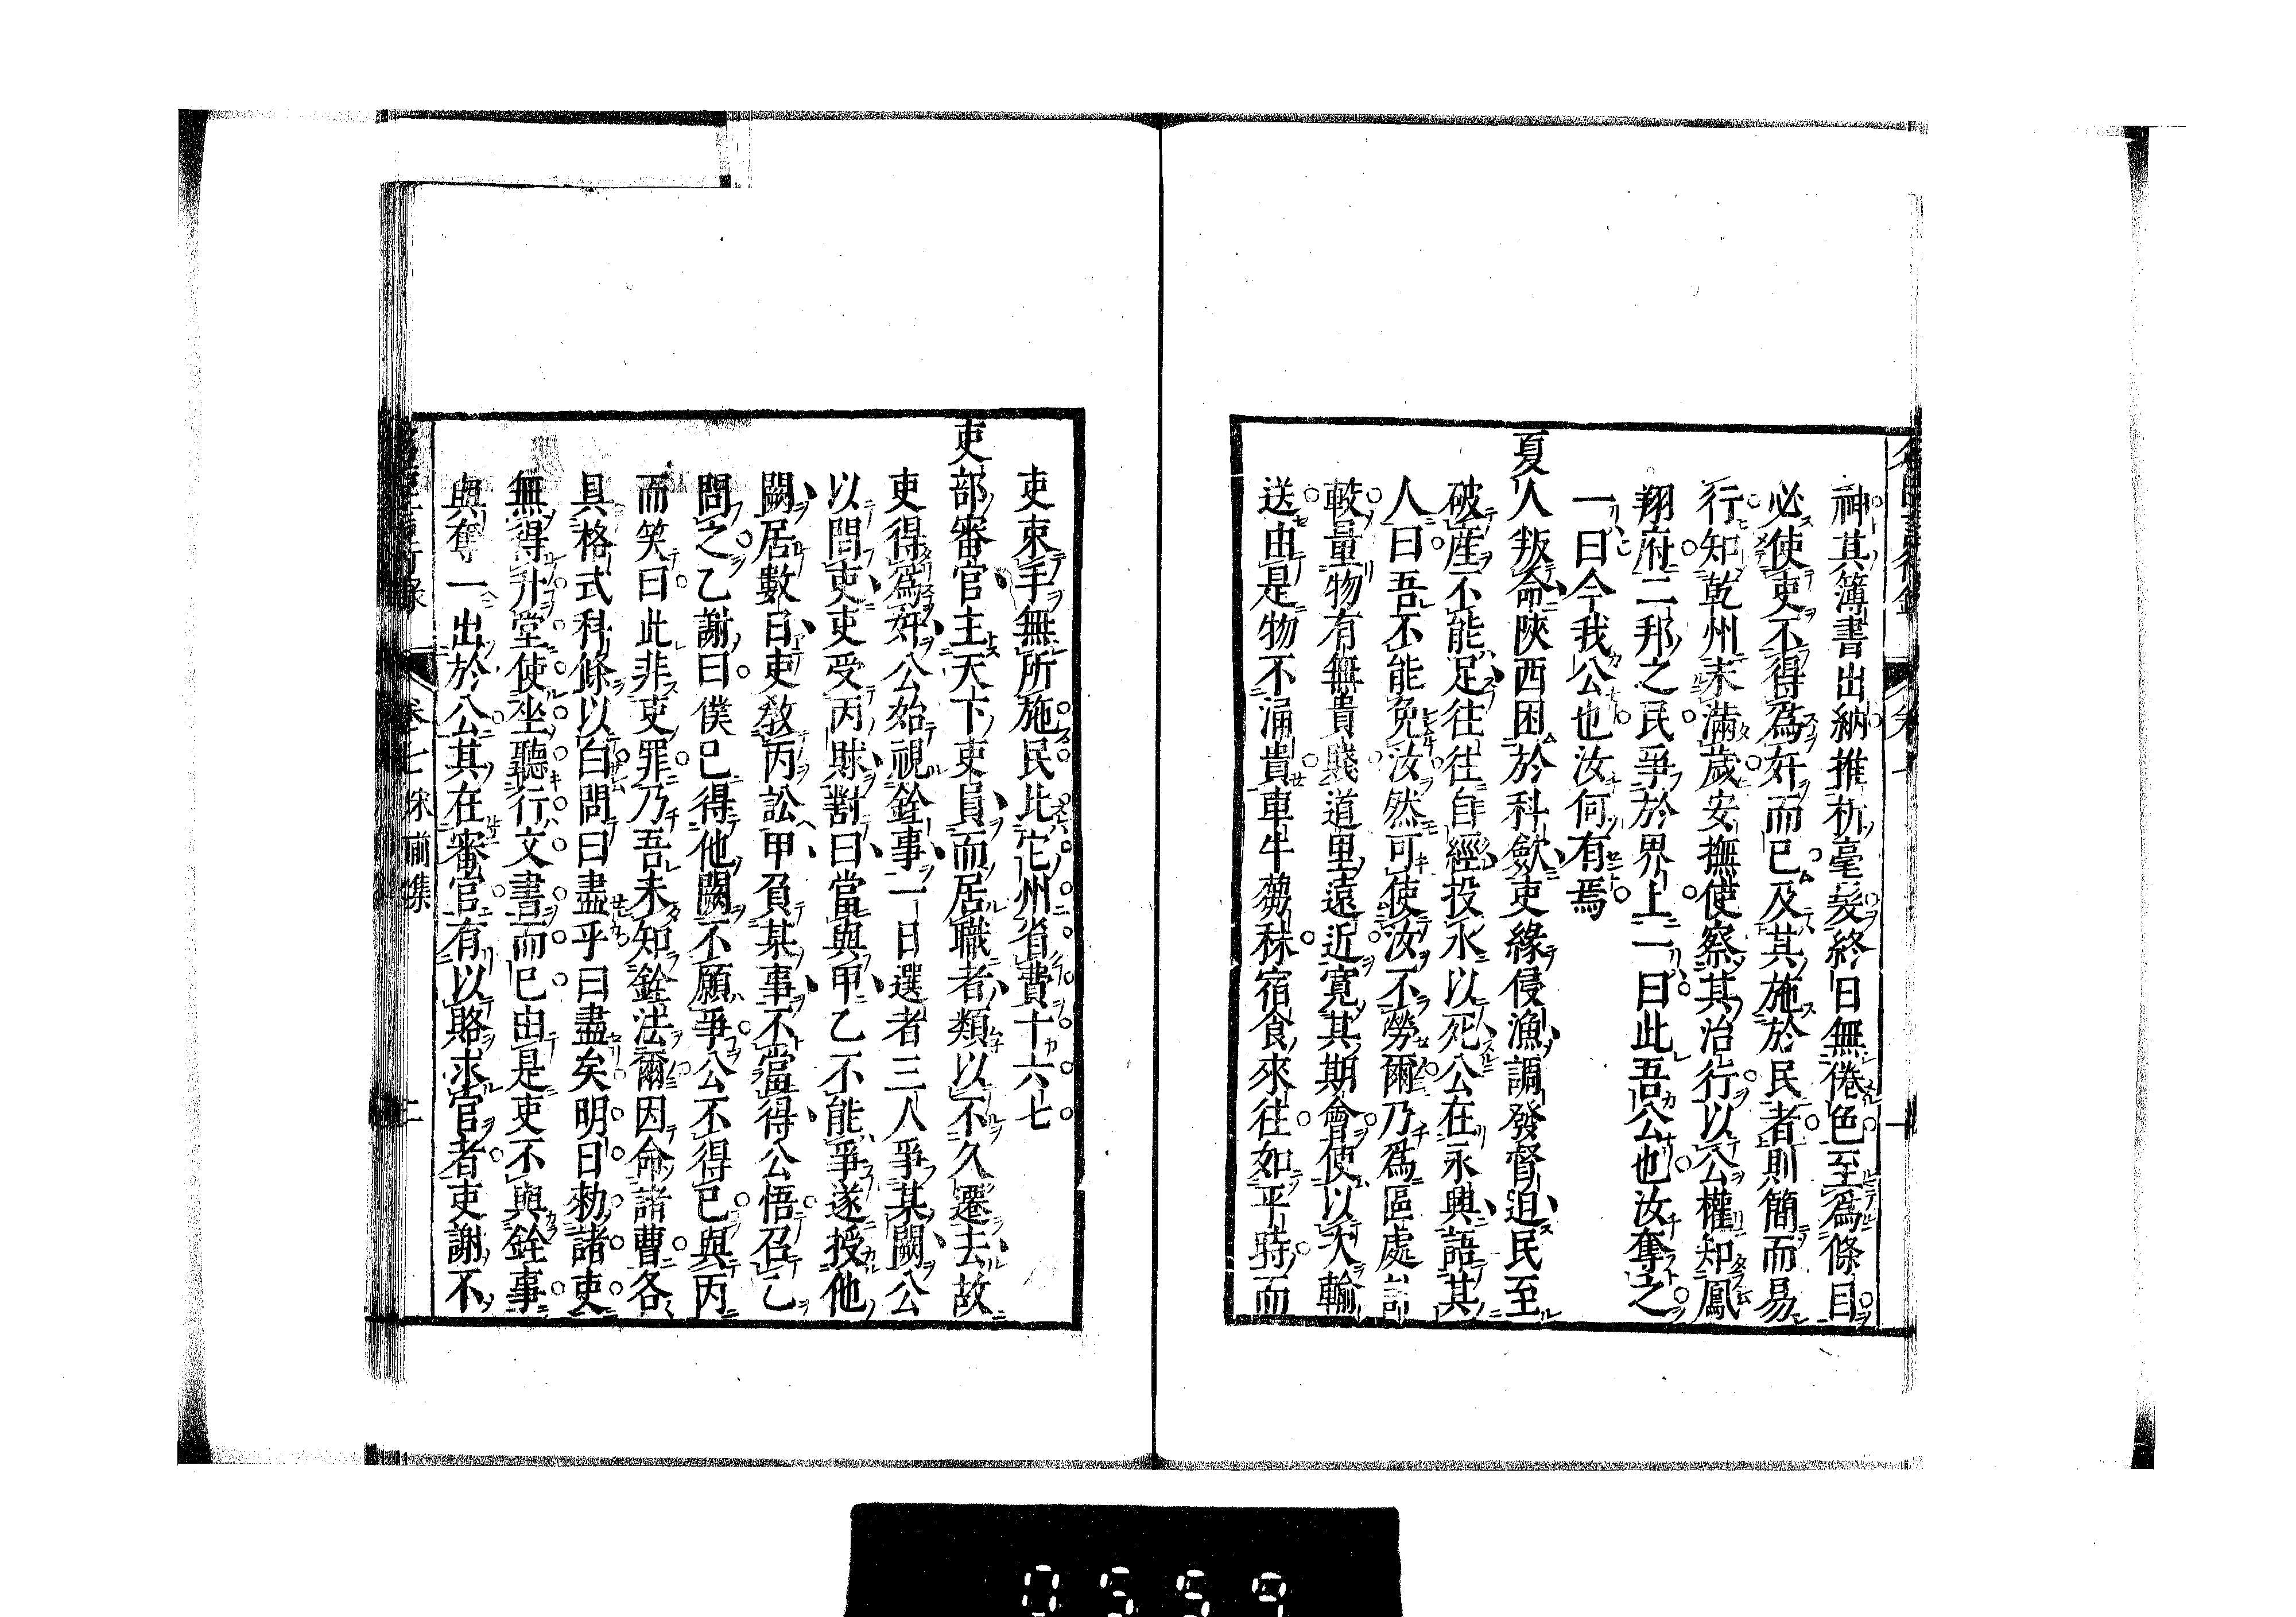 神其簿書出納推析毫髮終日無倦色至爲條目
必使吏不得爲奸而已及其施於民者則簡而易
行知乾州未滿歲安撫使察其治行以公權知鳳
翔府二邦之民爭於界上一曰此吾公也汝奪之
一曰今我公也汝何有焉
夏人叛命陝西困於科斂吏緣侵漁調發督迫民至
破産不能足往往自經投水以死公在永興語其
人曰吾不能免汝然可使汝不勞爾乃爲區處計
較量物有無貴賤道里遠近寛其期會使以次輸
送由是物不涌貴車牛芻秣宿食來往如平時而
吏束手無所施民比它州省費十六七
吏部審官主天下吏員而居職者類以不久遷去故
吏得爲奸公始視銓事一日選者三人爭某闕公
以問吏吏受丙賕對曰當與甲乙不能爭遂授他
闕居數日吏敎丙訟甲負某事不當得公悟召乙
問之乙謝曰僕已得他闕不願爭公不得已與丙
而笑曰此非吏罪乃吾未知銓法爾因命諸曹各
具格式科條以白問曰盡乎曰盡矣明日勑諸吏
無得升堂使坐聽行文書而已由是吏不與銓事
與奪一出於公其在審官有以賂求官者吏謝不
卷七 宋前集 二
0559